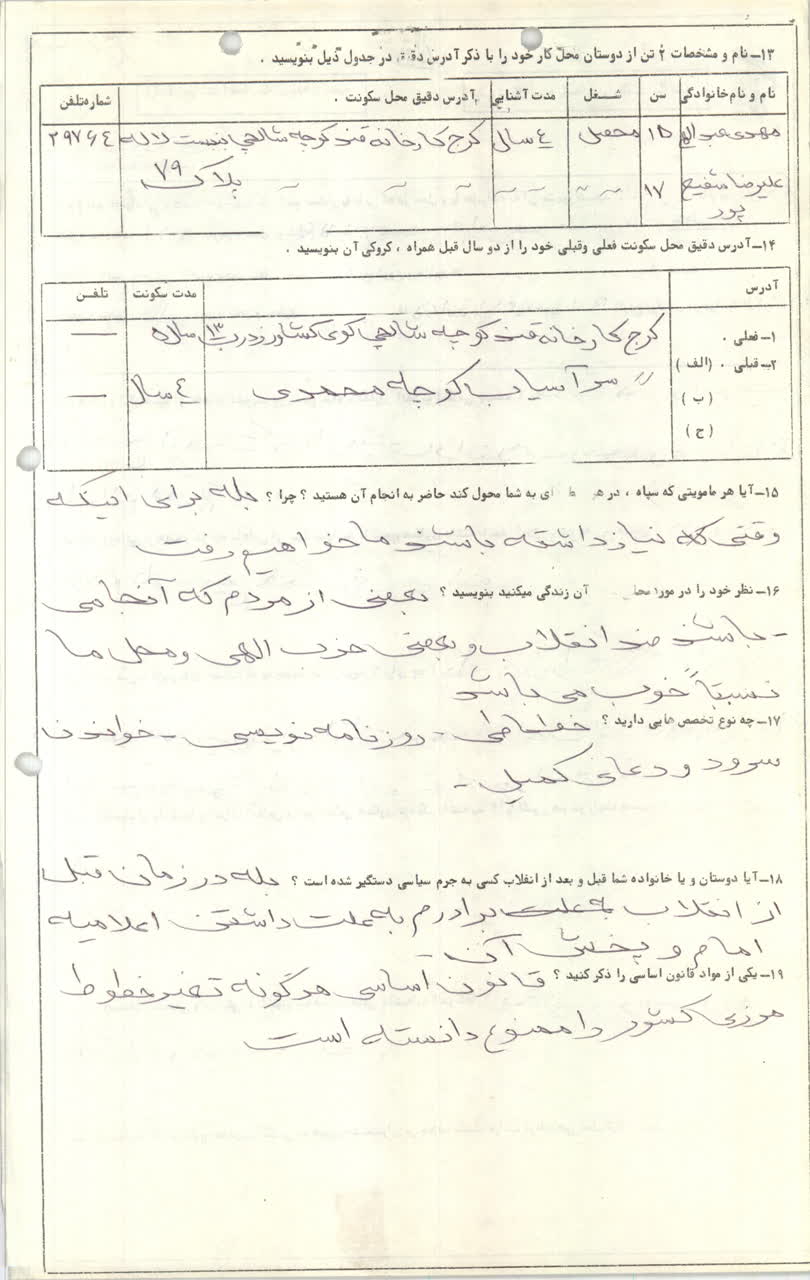 ۱۳ــ نام و مشخصات ۲ تن از دوستان محل کار خود را با ذکر آدرس دقیق در جدول ذیل بنویسید .
نام و نام خانوادگی سن شــغل مدت آشنایی آدرس دقیق محل سکونت . شماره تلفن
مهدی عبدالهی ۱۵ محصل ٤ سال کرج کارخانه قند کوچه شالچی بن بست لاله ۲۹۷۶٤
پلاک ۷۹
علیرضا شفیع ۱۷ 〃 〃 〃
پور
۱۴ــ آدرس دقیق محل سکونت فعلی وقبلی خود را از دو سال قبل همراه ، کروکی آن بنویسید .
آدرس مدت سکونت تلفن
۱ــ فعلی . کرج کارخانه قند کوچه شالچی کوی کشاورز درب ۱۳ ساله —
۲ــ قبلی . (الف) 〃 سرآسیاب کوچه محمدی ٤ سال —
(ب)
(ج)
۱۵ــ آیا هر مامویتی که سپاه ، در هر ای به شما محول کند حاضر به انجام آن هستید ؟ چرا ؟ بله برای اینکه
وقتی که نیاز داشته باشند ما خواهیم رفت
۱۶ــ نظر خود را در مورد محل آن زندگی میکنید بنویسید ؟ بعضی از مردم که آنجا می
ـ باشند ضد انقلاب و بعضی حزب الهی و محل ما
نسبتاً خوب می باشد
۱۷ــ چه نوع تخصص هایی دارید ؟ خطاطی ـ روزنامه نویسی ـ خواندن
سرود و دعای کمیل ـ
۱۸ــ آیا دوستان و یا خانواده شما قبل و بعد از انقلاب کسی به جرم سیاسی دستگیر شده است ؟ بله در زمان قبل
از انقلاب به علت برادرم به علت داشتن اعلامیه
امام و پخش آن ـ
۱۹ــ یکی از مواد قانون اساسی را ذکر کنید ؟ قانون اساسی هرگونه تغیر خطوط
مرزی کشور را ممنوع دانسته است